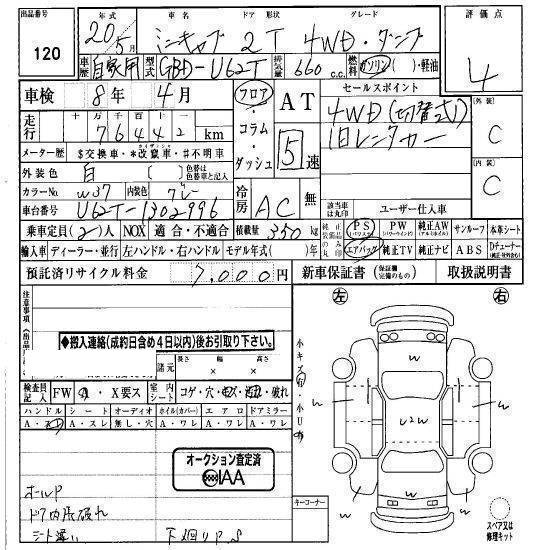 出品番号 年式 車名 ドア 形状 グレード 評価点
120 20年 5月 ミニキャブ 2T 4WD・ダンプ 4
車歴 自家用 型式 GBD-U62T 排気量 660 c.c. 燃料 ガソリン ( )・軽油
車検 8年 4月 フロア・コラム・ダッシュ AT セールスポイント
走行 十万千百十 76442 km 5速 4WD(切替式) 外装 C
メーター歴 $交換車・*改竄車・#不明車 旧レンタカー
外装色 白 ( ) 色替車は色替車と記入 内装 C
カラーNo w37 内装色 グレー 冷房 AC 無
車台番号 U62T-1302996 該当車は丸印 ユーザー仕入車
乗車定員 (2)人 NOX 適合・不適合 積載量 350kg 純正装備品のみ丸印 PS (パワステ) PW (パワーウインド) 純正AW (アルミホイル) サンルーフ 本革シート
輸入車 ディーラー・並行 左ハンドル・右ハンドル モデル年式( )年 エアバッグ 純正TV 純正ナビ ABS Dチューナー
預託済リサイクル料金 7,000円 新車保証書 (保証欄完備のもの) 取扱説明書
注意事項 左 右
◆搬入連絡(成約日含め4日以内)後お引取り下さい。
諸元 長さ 幅 高さ 小キズ有・小U有
検査員記入 FW A・X要ス 室内シート コゲ・穴・スレ・汚れ・破れ
ハンドル シート オーディオ ホイル(カバー) エアロ ドアミラー
A・スレ A・スレ 無し・穴 A・ワレ A・ワレ A・ワレ
w
w w
U2W
w
オークション査定済
IAA
ホールP
ドア内張破れ
下廻りP.S
キーコーナー
スペア又は修理キット